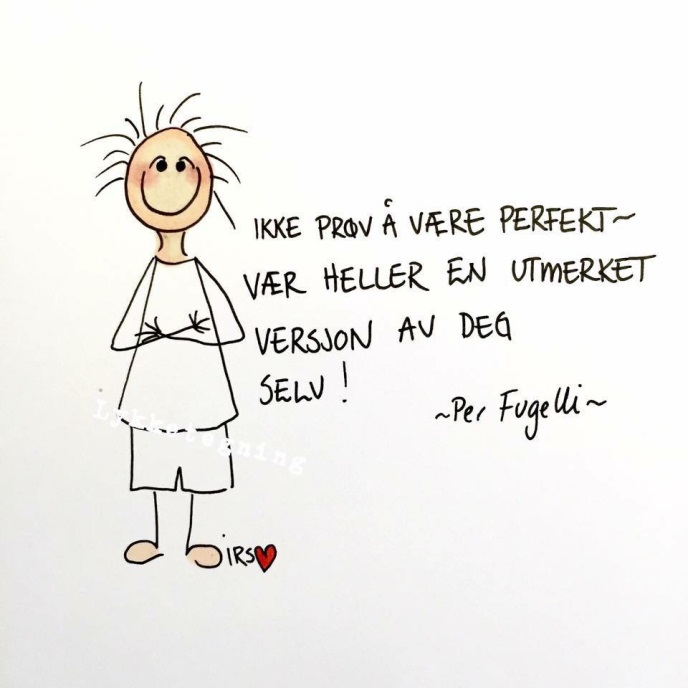 IKKE PRØV Å VÆRE PERFEKT~
VÆR HELLER EN UTMERKET
VERSJON AV DEG
SELV!
~Per Fugelli~
Lykketegning
IRS